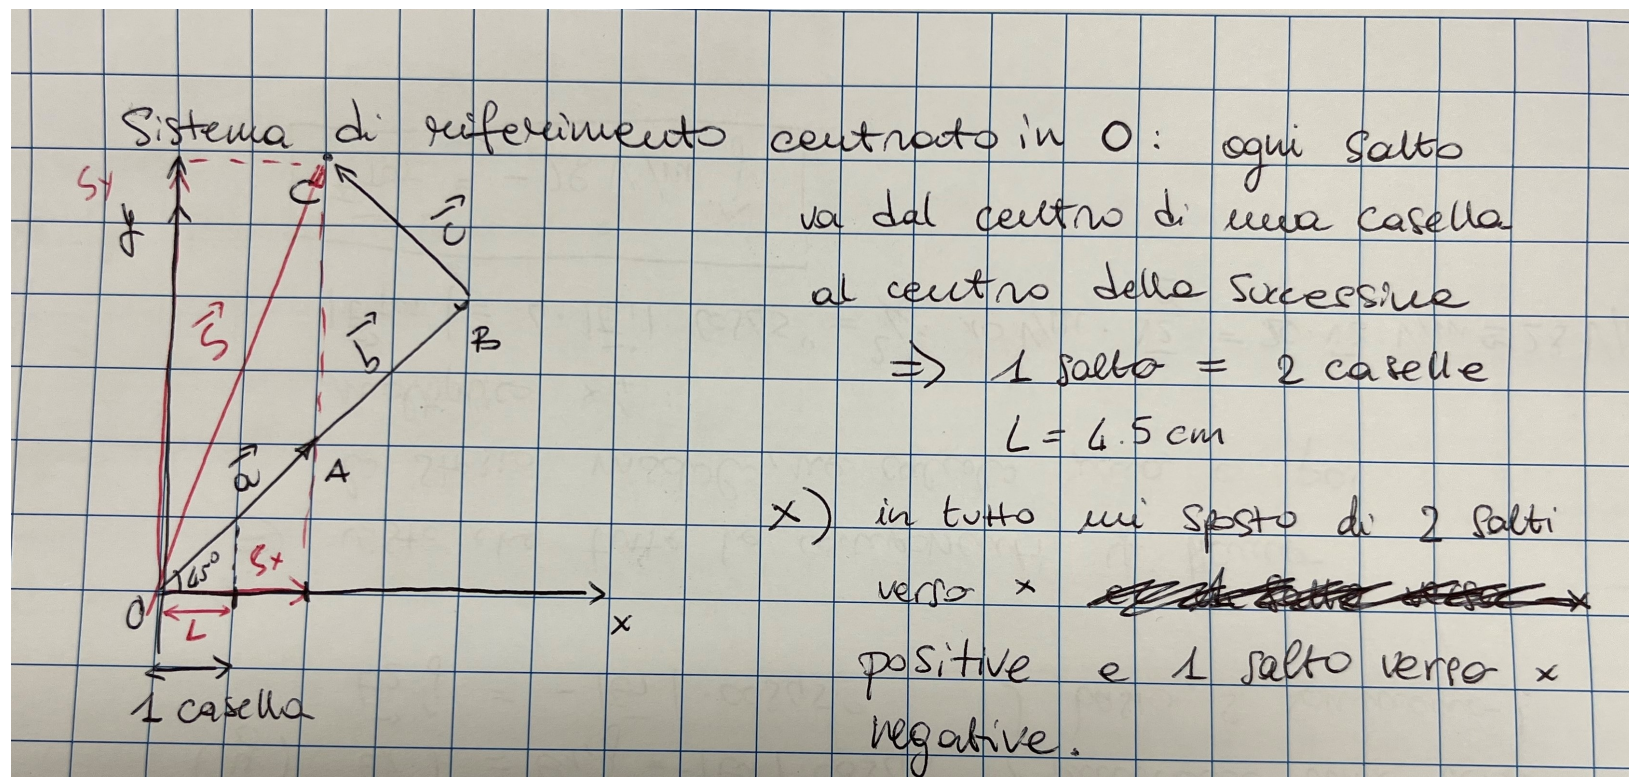 Sistema di riferimento centrato in O: ogni salto
va dal centro di una casella
al centro della successiva
=> 1 salto = 2 caselle
L = 4.5 cm
x) in tutto mi sposto di 2 salti
verso x
positive e 1 salto verso x
negative.
Sy
y
C
c
S
b
B
a
A
45°
Sx
O
L
x
1 casella